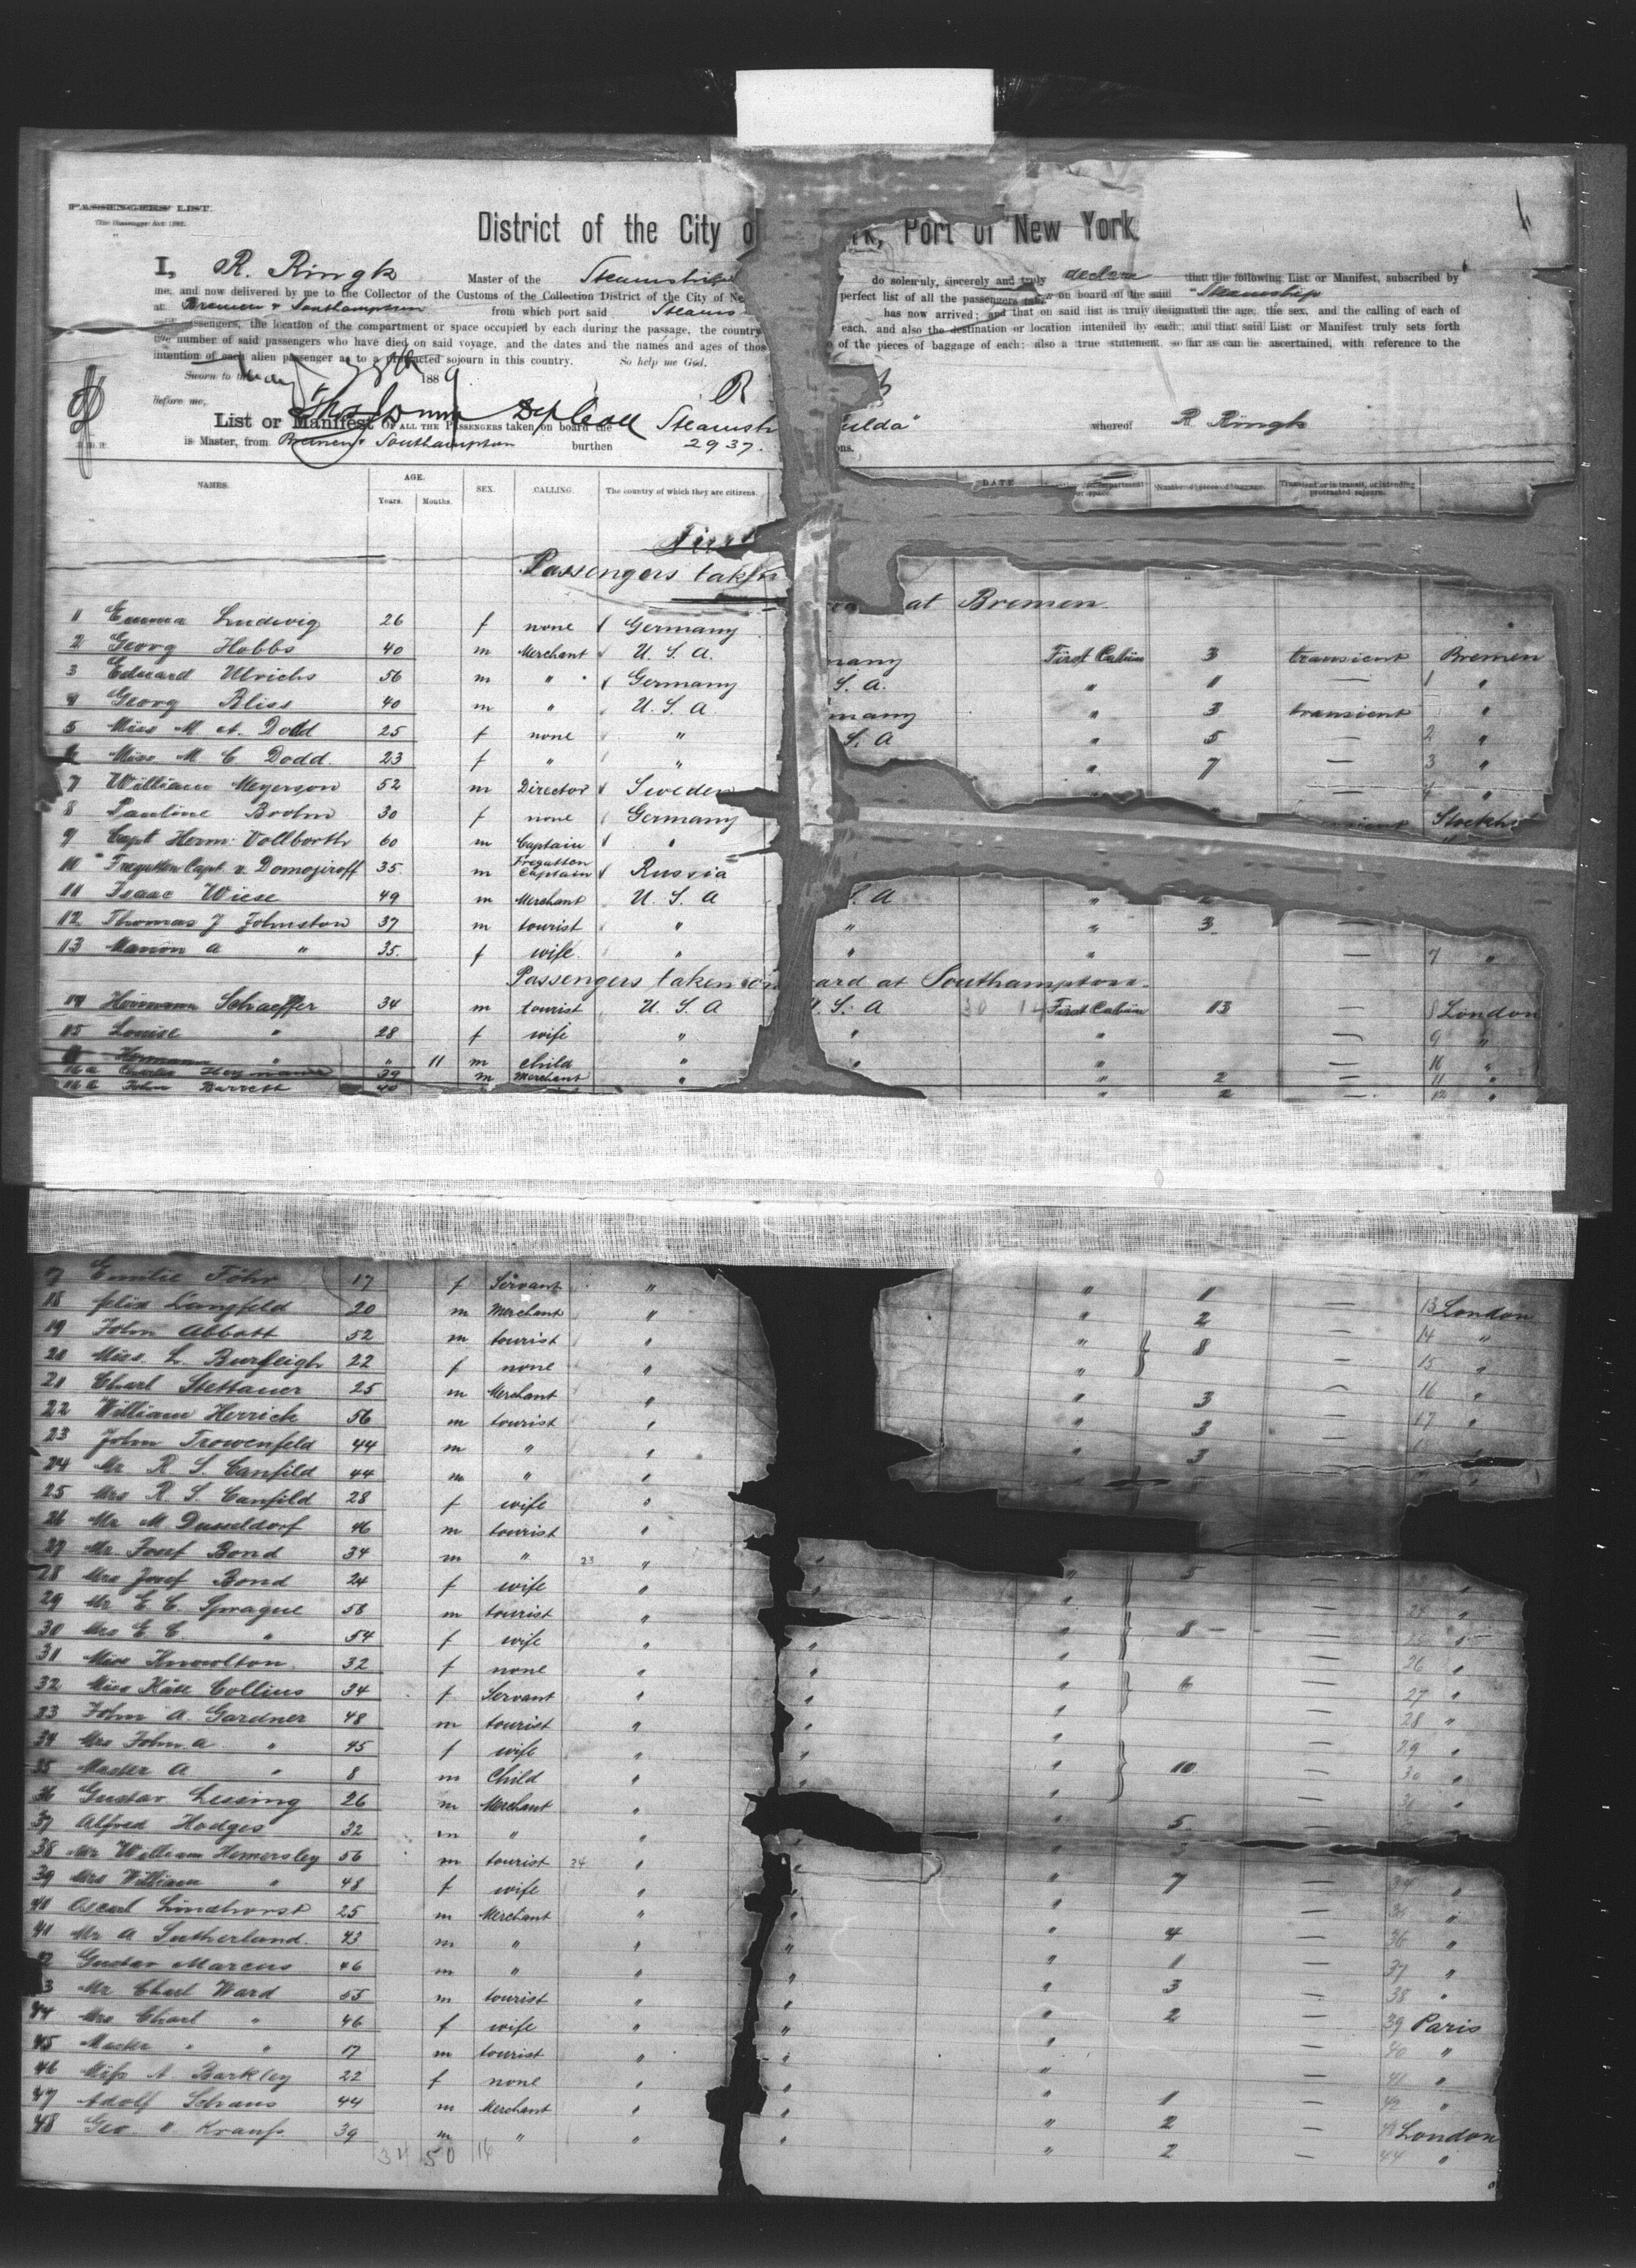 PASSENGERS' LIST.
District of the City of Port of New York.
I, R. Ringk Master of the Steamship do solemnly, sincerely and truly declare that the following List or Manifest, subscribed by
me, and now delivered by me to the Collector of the Customs of the Collection District of the City of Ne perfect list of all the passengers taken on board of the said Steamship
at Bremen & Southampton from which port said Steams has now arrived; and that on said list is truly designated the age, the sex, and the calling of each of
passengers, the location of the compartment or space occupied by each during the passage, the country each, and also the destination or location intended by each; and that said List or Manifest truly sets forth
the number of said passengers who have died on said voyage, and the dates and the names and ages of thos of the pieces of baggage of each; also a true statement, so far as can be ascertained, with reference to the
intention of each alien passenger as to a protracted sojourn in this country. So help me God.
Sworn to 1889
Before me, R
List or Manifest OF ALL THE PASSENGERS taken on board the Steamsh ulda" whereof R Ringk
is Master, from Bremen & Southampton burthen 2937. ns.
NAMES. AGE. Years. Months. SEX. CALLING. The country of which they are citizens. DATE Number of pieces of baggage. Transient or in transit, or intending protracted sojourn.
First
Passengers taken at Bremen.
1 Emma Ludwig 26 f none Germany
2 Georg Hobbs 40 m Merchant U. S. A. many First Cabin 3 transient Bremen
3 Eduard Ulrichs 56 m " Germany S. A. " 11 — 1 "
4 Georg Bliss 40 m " U. S. A many " 3 transient "
5 Miss M A. Dodd 25 f none " S. A " 5 — 2 "
6 Miss M C Dodd 23 f " " " 7 — 3 "
7 William Meyerson 52 m Director Sweden
8 Pauline Brohm 30 f none Germany Stockh
9 Capt Herm. Vollborth 60 m Captain "
10 Fregatten Capt v. Domojiroff 35 m Fregatten Captain Russia
11 Isaac Wiese 49 m Merchant U. S. A S. A "
12 Thomas J Johnston 37 m tourist " " " 3 —
13 Marion A " 35 f wife " " " — 7 "
Passengers taken on board at Southampton.
14 Hermann Schaeffer 34 m tourist U. S. A U. S. A First Cabin 13 — 8 London
15 Louise " 28 f wife " " " — 9 "
Hermann " " 11 m child " " " — 10 "
16a Charles Heymann 39 m Merchant " " 2 — 11 "
16b John Barrett 40 " 2 — 12 "
17 Emilie Föhr 17 f Servant " " 1 —
18 Felix Langfeld 20 m Merchant " " 2 — 13 London
19 John Abbott 52 m tourist " " 8 — 14 "
20 Miss. L. Burleigh 22 f none " " — 15 "
21 Charl Stettauer 25 m Merchant " " 3 — 16 "
22 William Herrick 56 m tourist " " 3 — 17 "
23 John Trowenfeld 44 m " " " 3 —
24 Mr R. S. Canfild 44 m " "
25 Mrs R. S. Canfild 28 f wife "
26 Mr M Dusseldorf 46 m tourist "
27 Mr. Josef Bond 34 m " 23 " " " 5
28 Mrs Josef Bond 24 f wife " " " — 24 "
29 Mr E. C. Sprague 58 m tourist " " 8 —
30 Mrs E. C. " 54 f wife " " " — 26 "
31 Miss Knowlton 32 f none " " " 6 — 27 "
32 Miss Käte Collins 34 f Servant " " " — 28 "
33 John A. Gardner 48 m tourist " " "
34 Mrs John. A " 45 f wife " " " 10 — 29 "
35 Master A " 8 m Child " " " — 30 "
36 Gustav Lessing 26 m Merchant " " 5
37 Alfred Hodges 32 m " " "
38 Mr William Hemersley 56 m tourist 24 " " " 7 —
39 Mrs William " 48 f wife " " " —
40 Oscar Lindhorst 25 m Merchant " " " 4 — 36 "
41 Mr A Sutherland. 43 m " " " " 1 — 37 "
42 Gustav Marcus 46 m " " " " 3 — 38 "
43 Mr Charl Ward 55 m tourist " " " 2 — 39 Paris
44 Mrs Charl " 46 f wife " " " — 40 "
45 Master " " 17 m tourist " " " — 41 "
46 Miss A Barkley 22 f none " " " 1 — 42 "
47 Adolf Schaus 44 m Merchant " " " 2 — London
48 Geo. " Krauss. 39 m " " " " 2 — 44 "
34 50 16